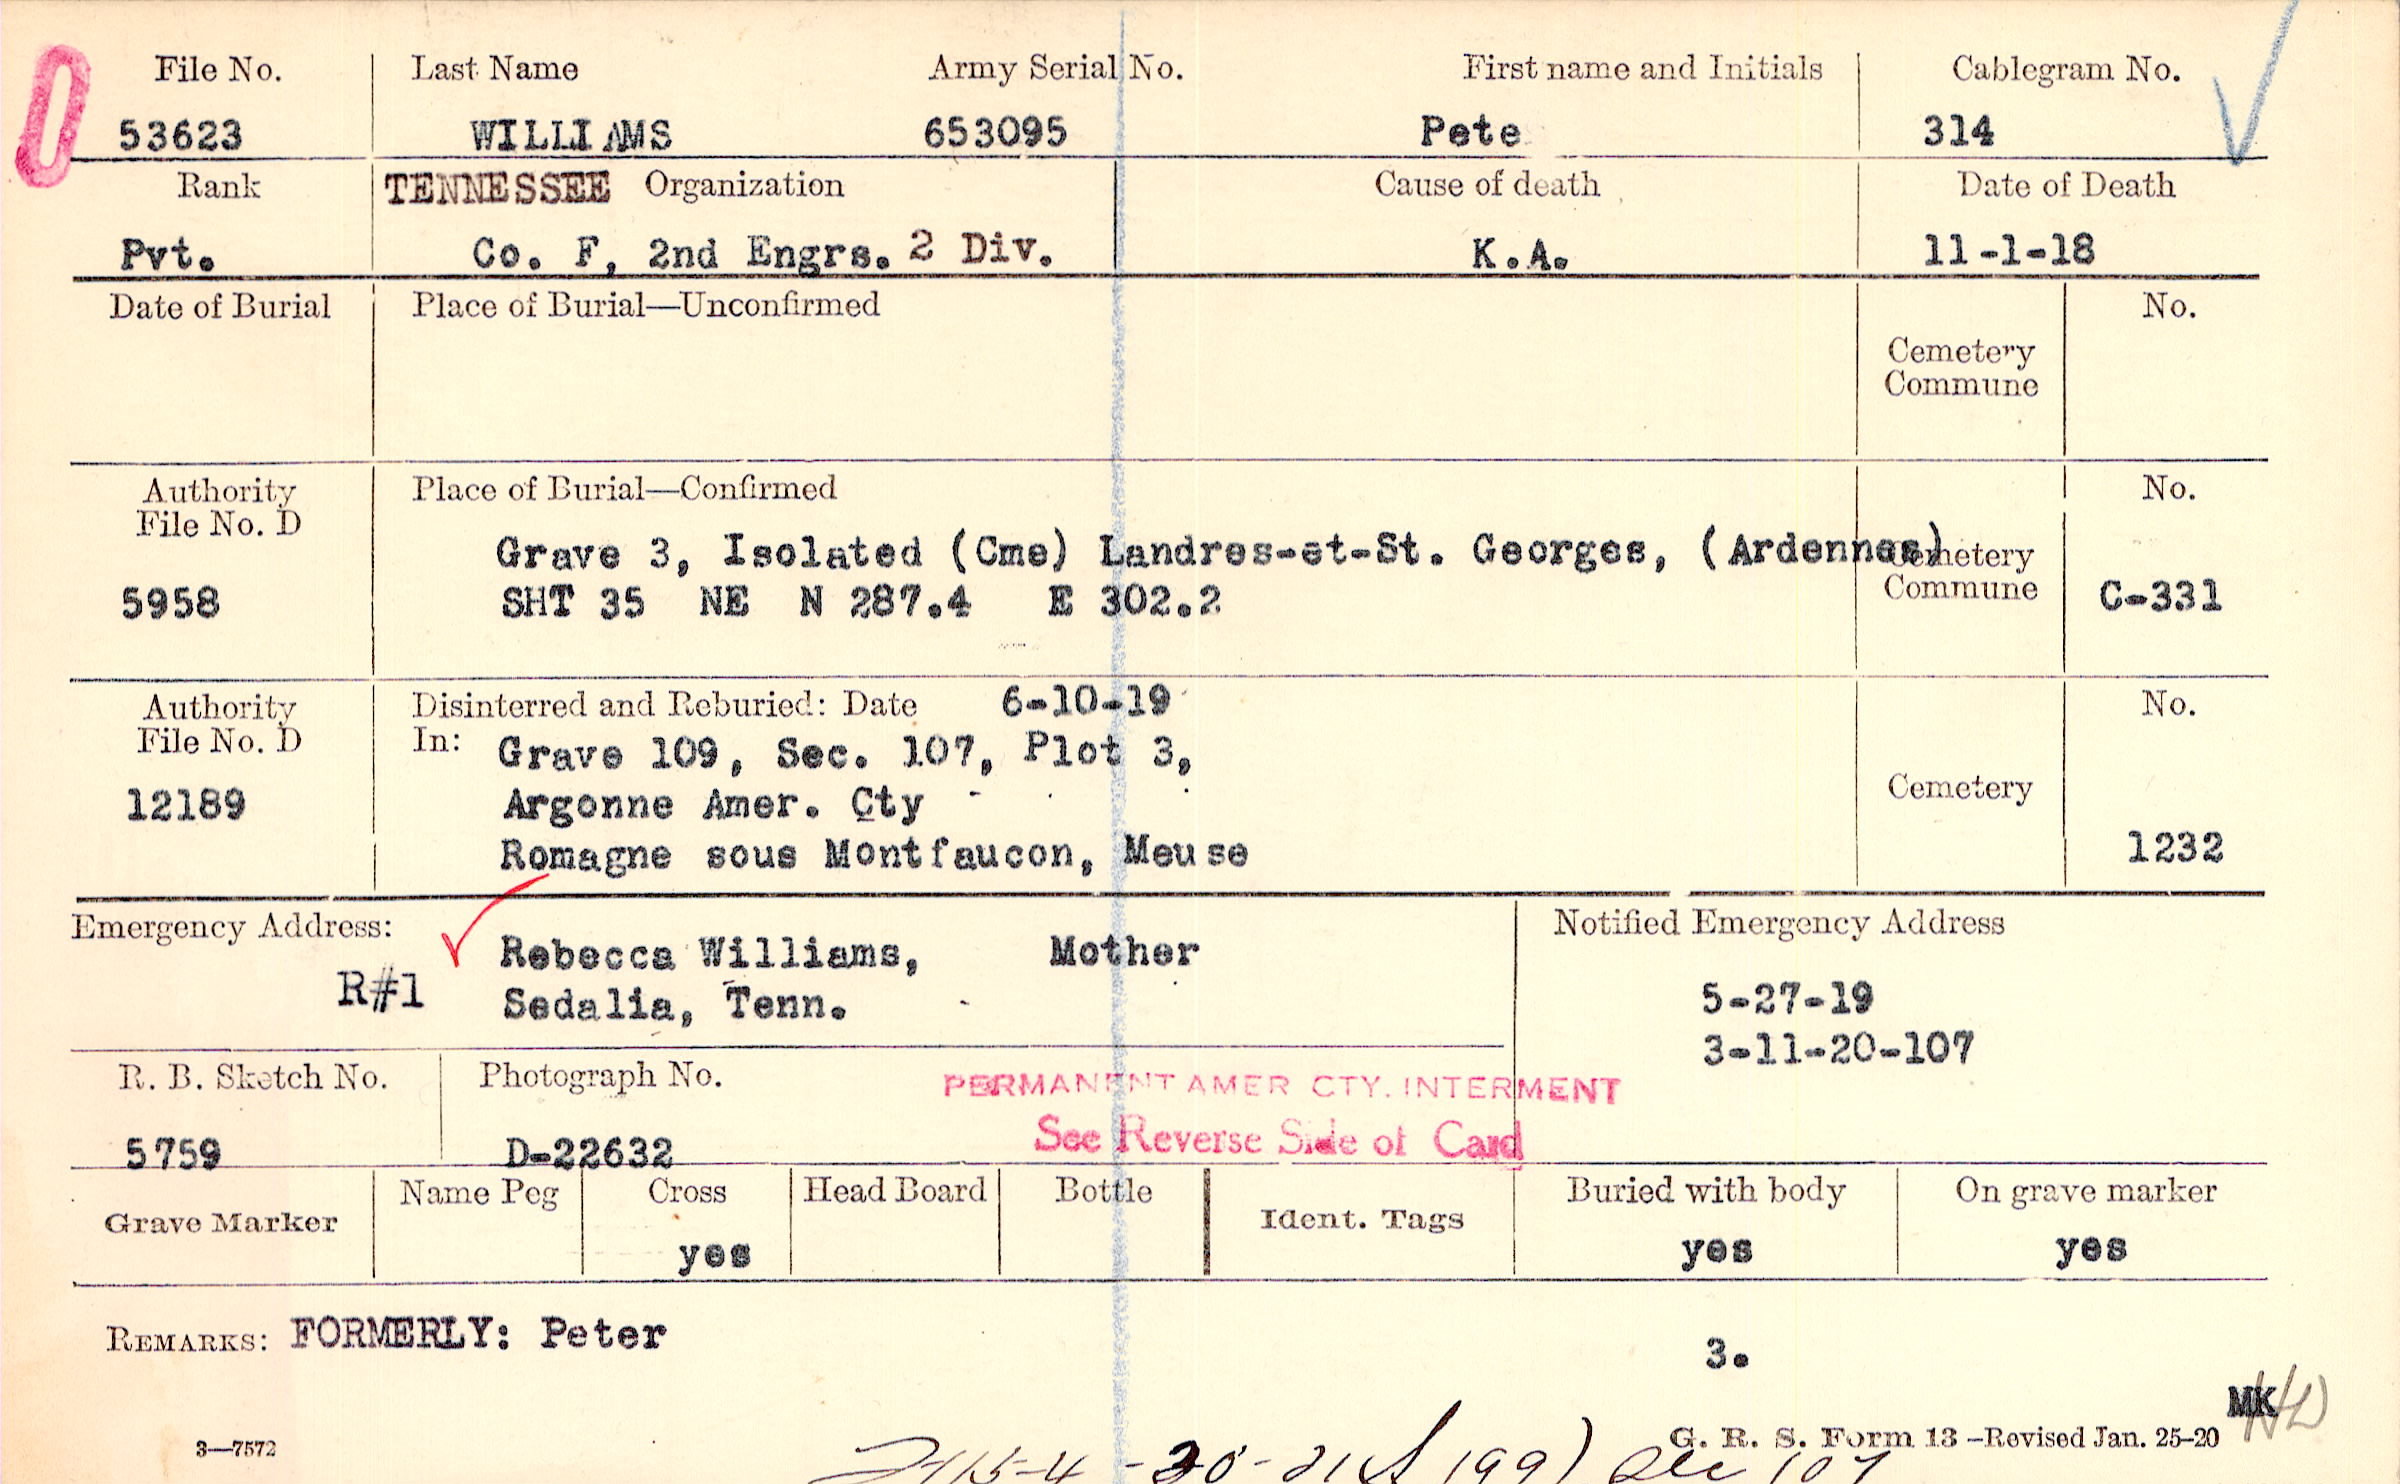 File No. Last Name Army Serial No. First name and Initials Cablegram No.
53623 WILLIAMS 653095 Pete 314
Rank TENNESSEE Organization Cause of death Date of Death
Pvt. Co. F, 2nd Engrs. 2 Div. K.A. 11-1-18
Date of Burial Place of Burial—Unconfirmed No.
Cemetery
Commune
Authority Place of Burial—Confirmed No.
File No. D
Grave 3, Isolated (Cme) Landres-et-St. Georges, (Ardennes) Cemetery
5958 SHT 35 NE N 287.4 E 302.2 Commune C-331
Authority Disinterred and Reburied: Date 6-10-19 No.
File No. D In: Grave 109, Sec. 107, Plot 3,
12189 Argonne Amer. Cty Cemetery
Romagne sous Montfaucon, Meuse 1232
Emergency Address: Notified Emergency Address
Rebecca Williams, Mother
R#1 Sedalia, Tenn. 5-27-19
3-11-20-107
R. B. Sketch No. Photograph No. PERMANENT AMER CTY. INTERMENT
5759 D-22632 See Reverse Side of Card
Grave Marker Name Peg Cross Head Board Bottle Ident. Tags Buried with body On grave marker
yes yes yes
REMARKS: FORMERLY: Peter 3.
MK
3—7572 G. R. S. Form 13 —Revised Jan. 25-20